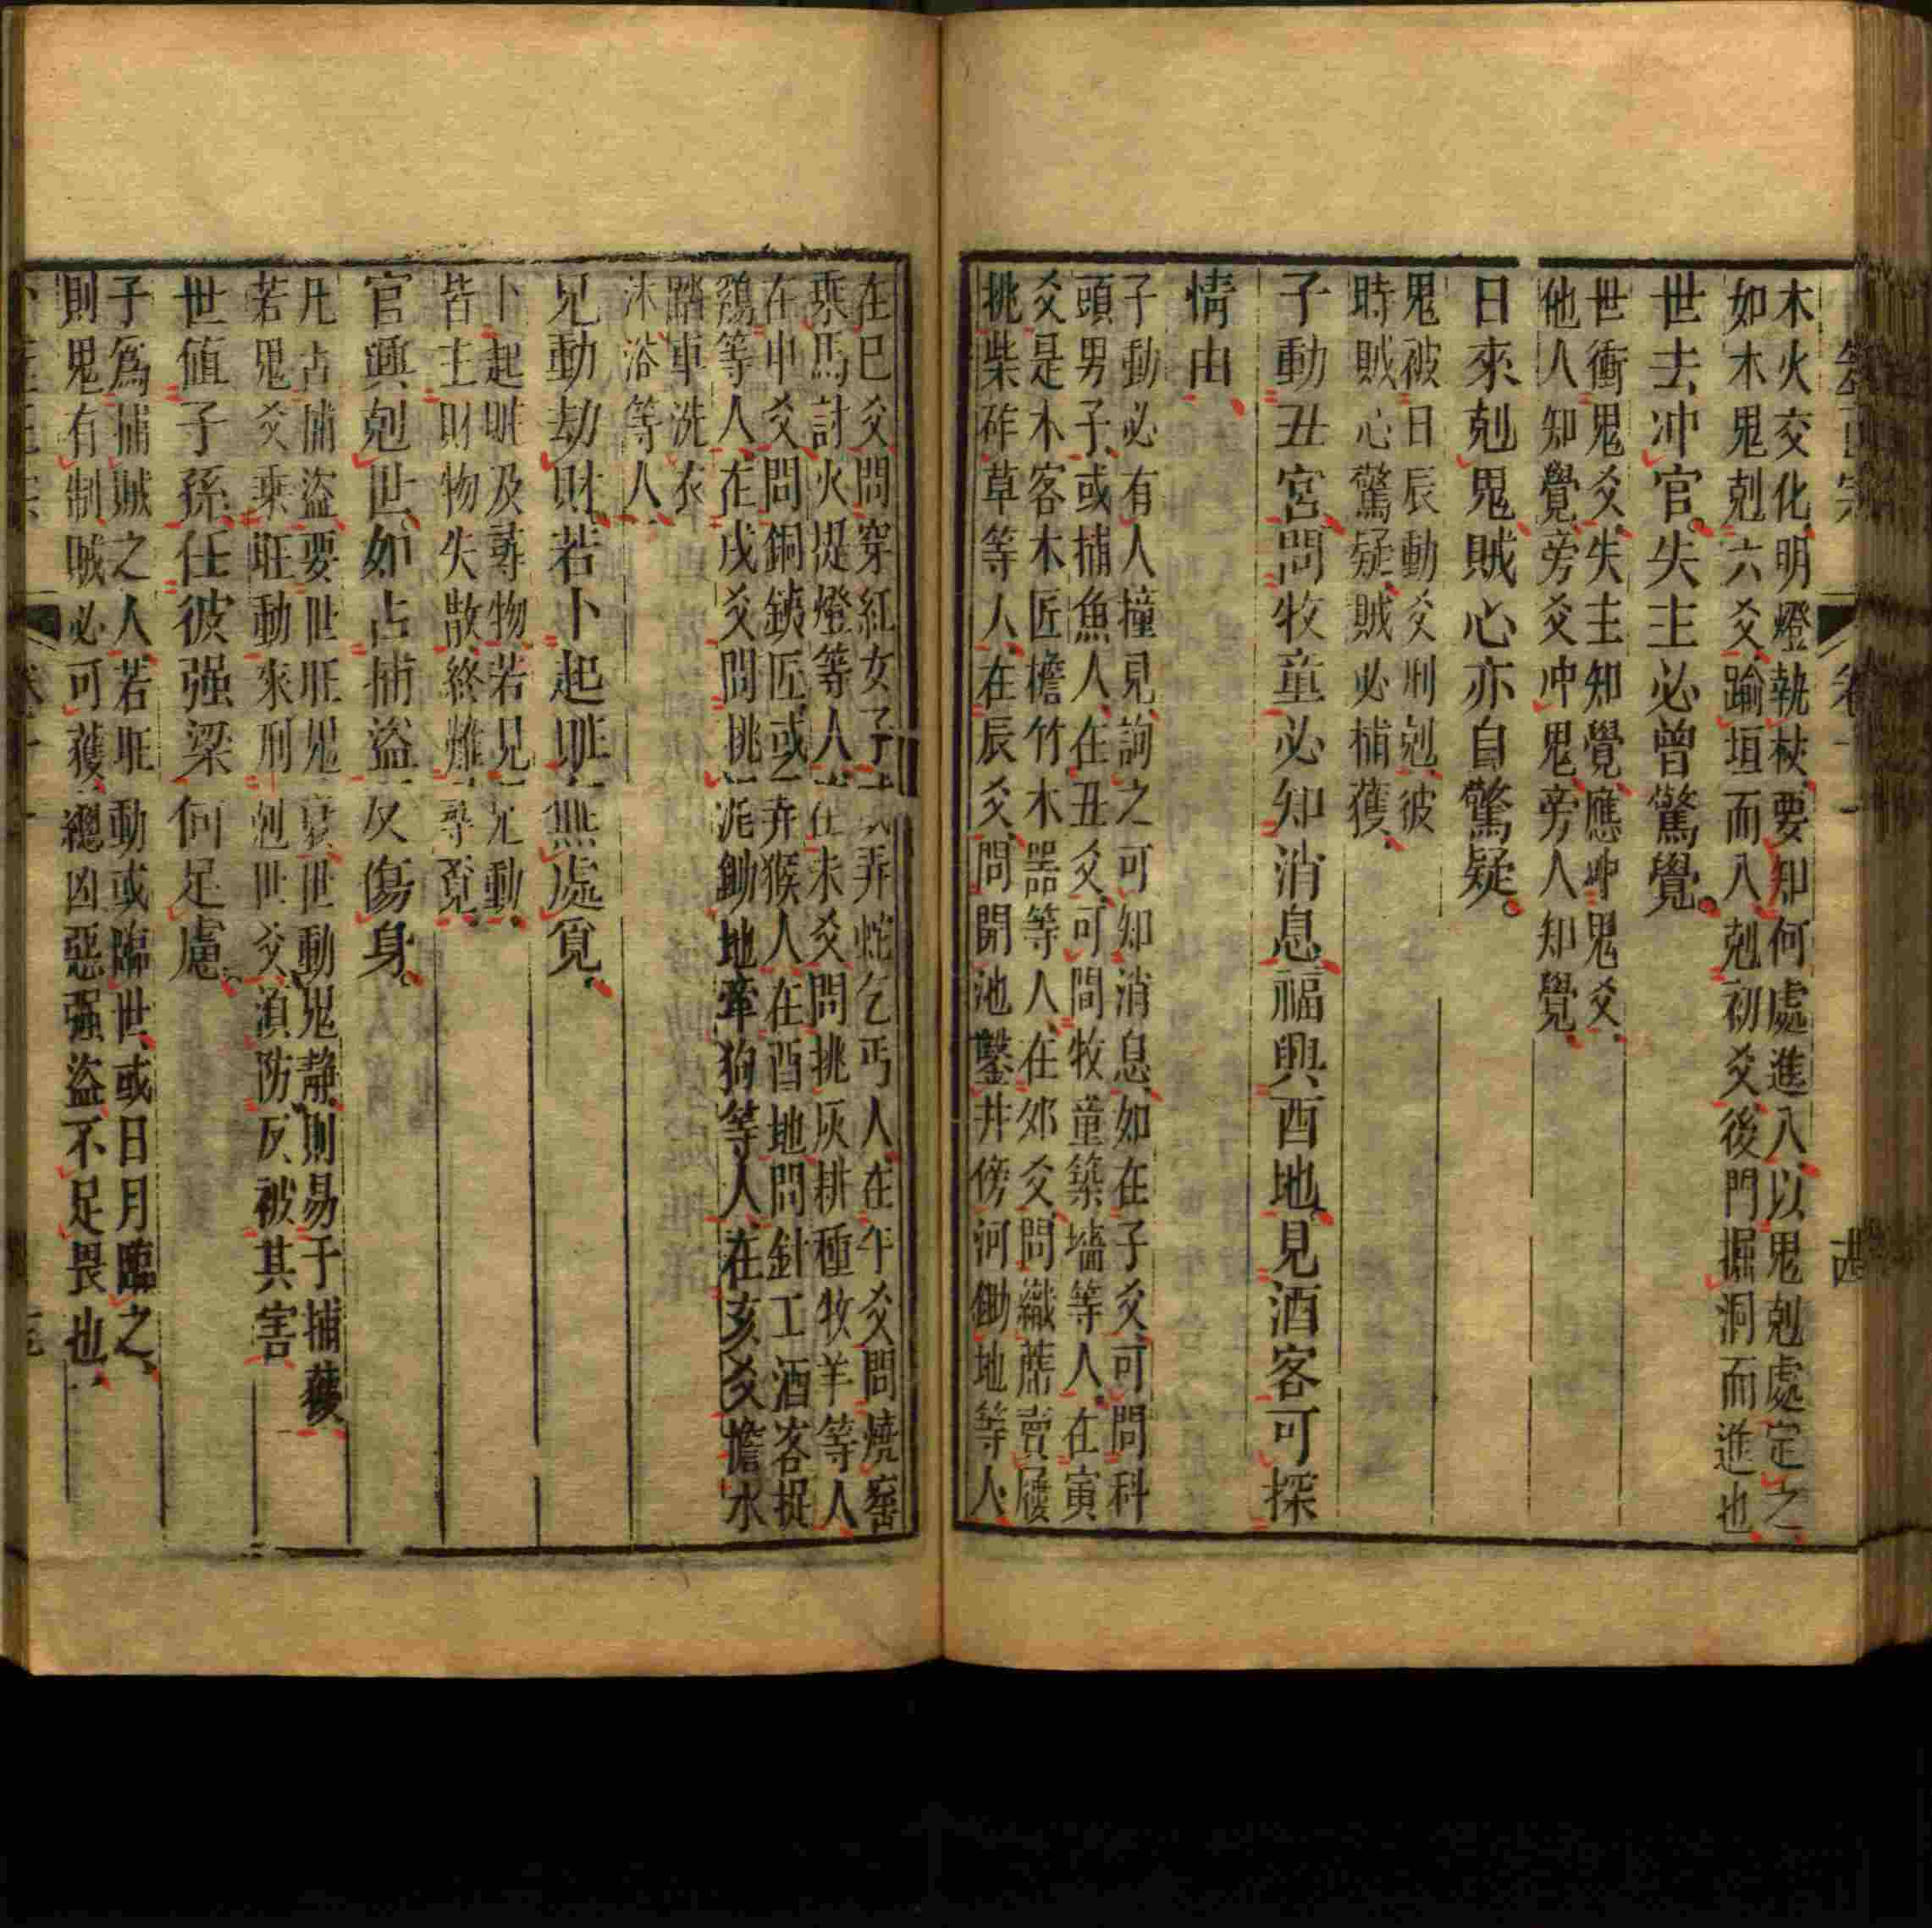 木火交化明燈執杖要知何處進入以鬼剋處定之
如木鬼剋六爻踰垣而入剋初爻後門掘洞而進也
世去冲官失主必曾驚覺
世衝鬼爻失主知覺應冲鬼爻
他人知覺旁爻冲鬼旁人知覺
日來剋鬼賊心亦自驚疑
鬼被日辰動爻刑剋彼
時賊心驚疑賊必捕獲
子動丑宮問牧童必知消息福興酉地見酒客可探
情由
子動必有人撞見詢之可知消息如在子爻可問科
頭男子或捕魚人在丑爻可問牧童築墻等人在寅
爻是木客木匠檐竹木器等人在夘爻問織蓆賣履
挑柴砟草等人在辰爻問開池鑿井傍河鋤地等人
在巳爻問穿紅女子弄蛇乞丐人在午爻問燒窰
乘馬討火提燈等人在未爻問挑灰耕種牧羊等人
在申爻問銅鉄匠或弄猴人在酉地問針工酒客捉
鷄等人在戌爻問挑泥鋤地牽狗等人在亥爻擔水
踏車洗衣
沐浴等人
兄動劫財若卜起賍無處覓
卜起賍及尋物若見兄動
皆主財物失散終難尋覔
官興剋世如占捕盜反傷身
凡占捕盜要世旺鬼衰世動鬼静則易于捕獲
若鬼爻乗旺動來刑剋世爻須防反被其害
世值子孫任彼强梁何足慮
子爲捕賊之人若旺動或臨世或日月臨之
則鬼有制賊必可獲縂凶惡强盜不足畏也